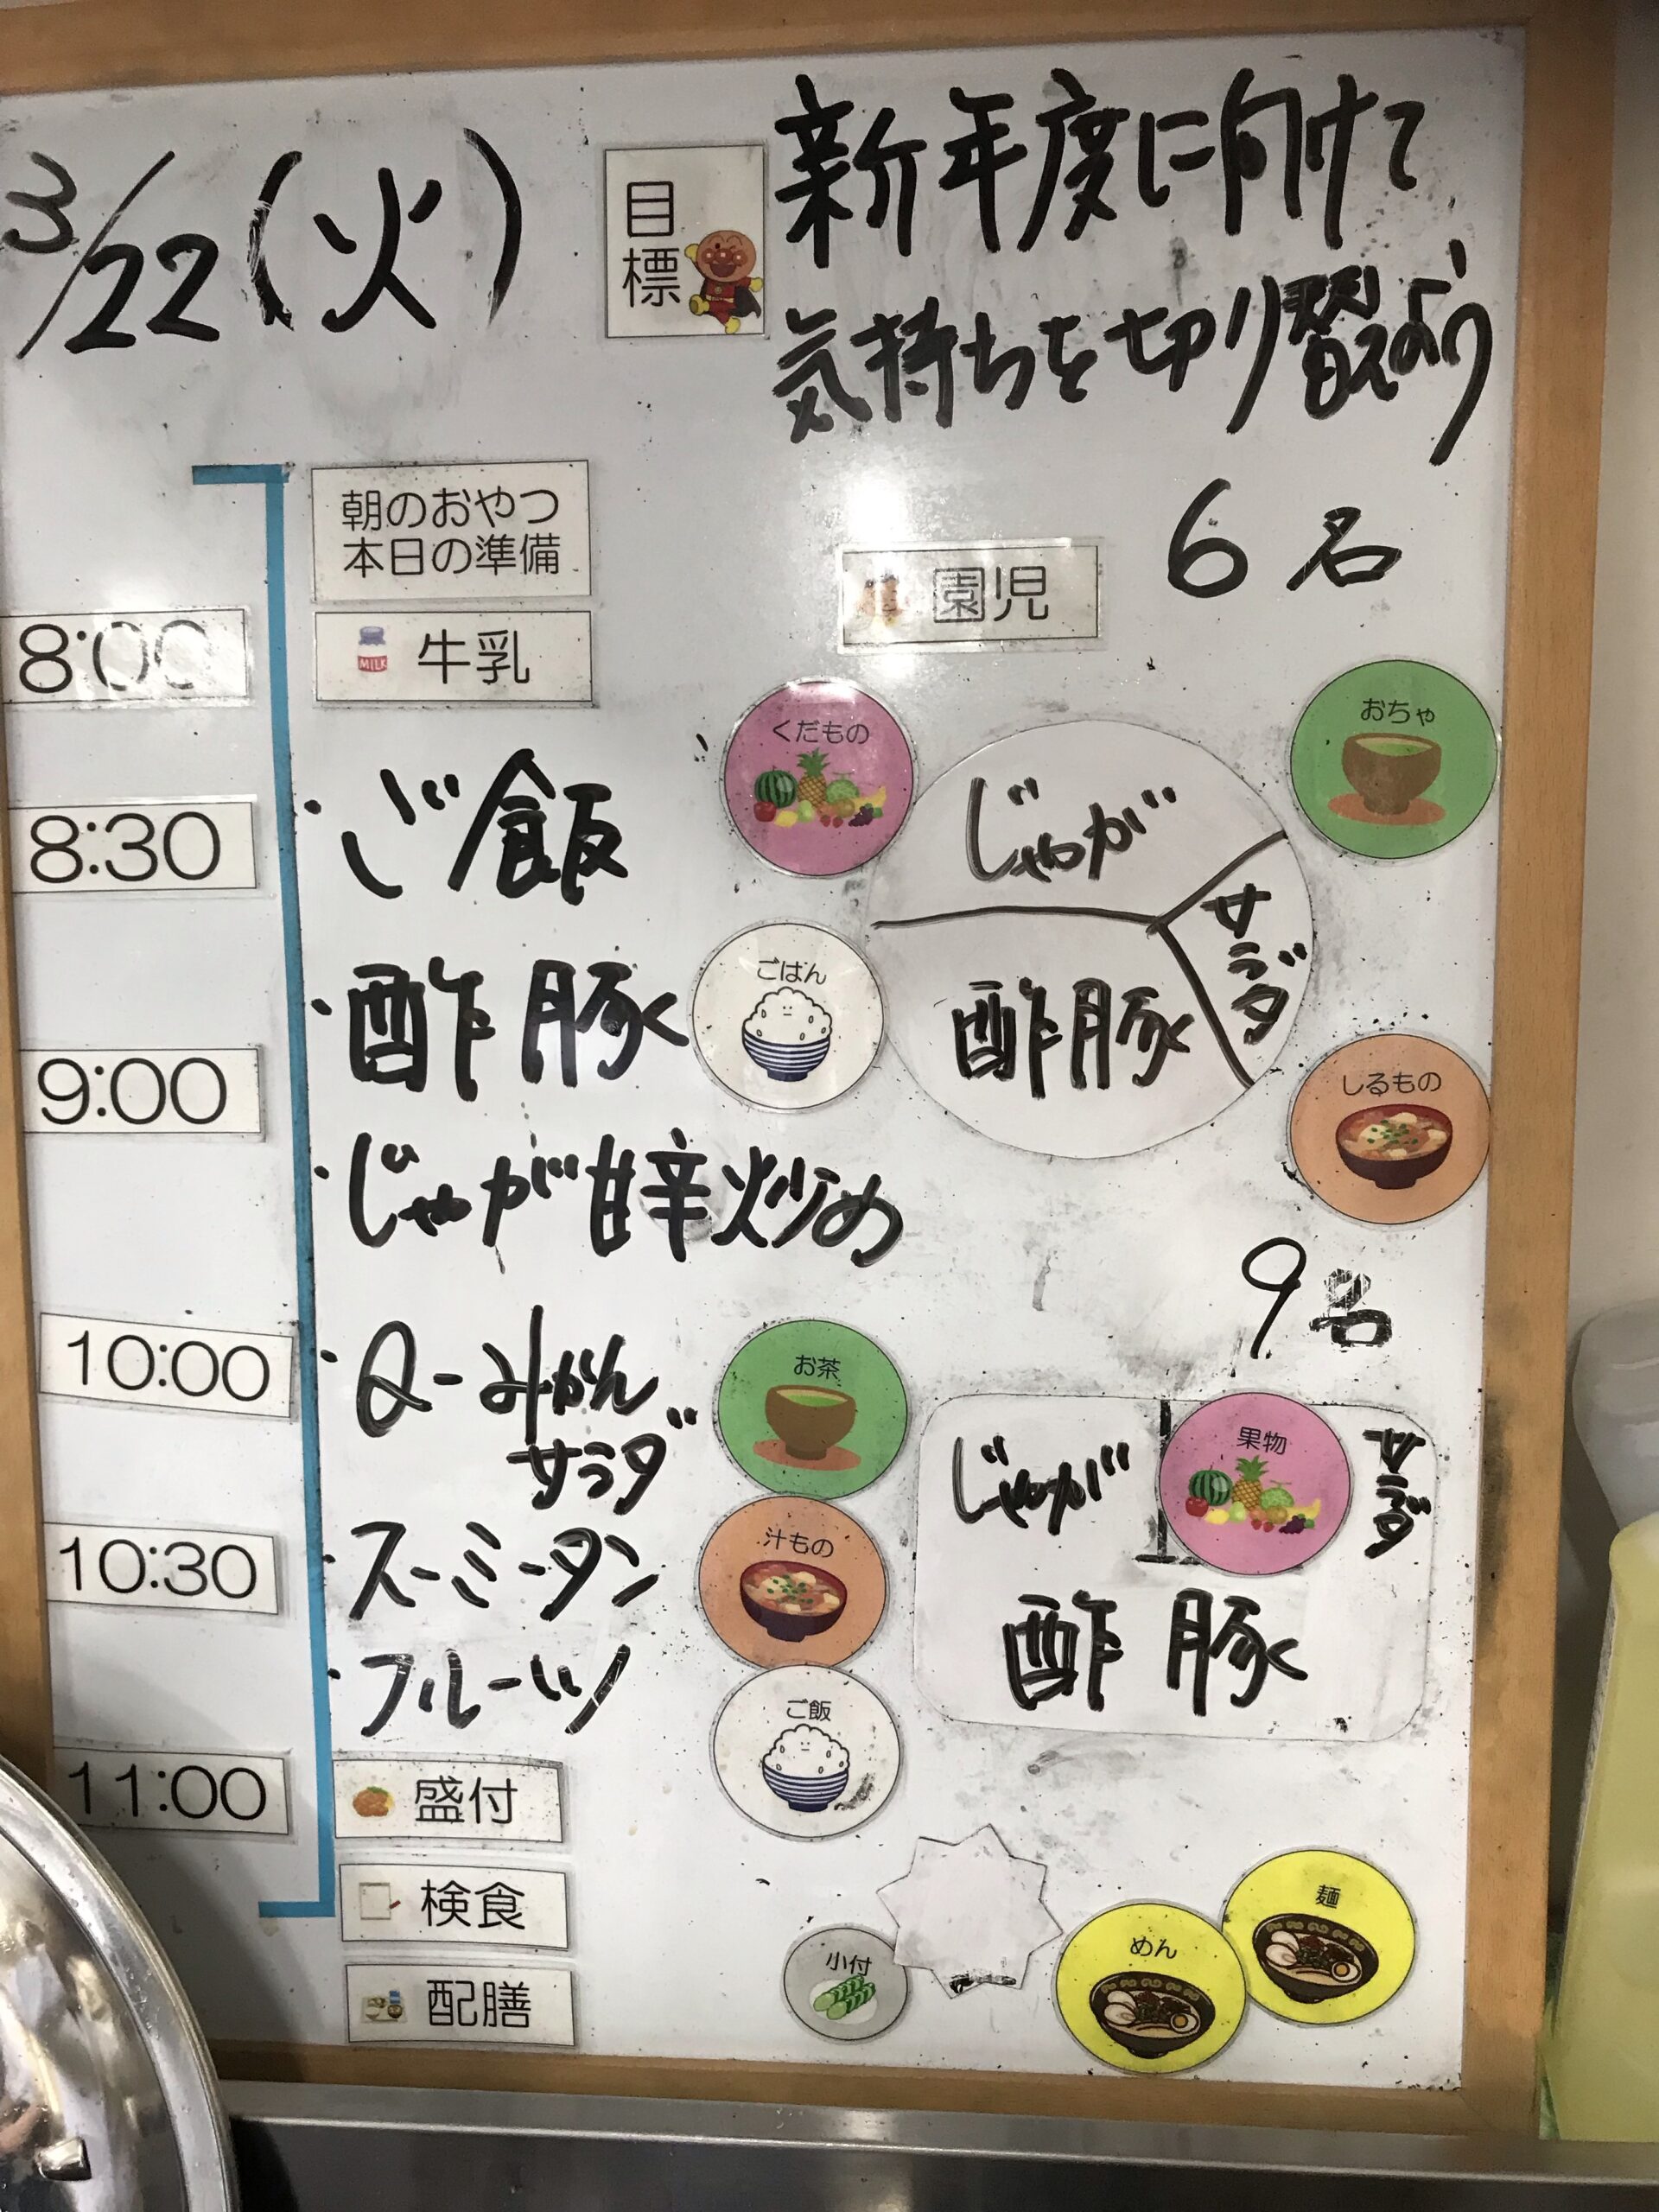 3/22(火)
目標
新年度に向けて
気持ちを切り替えよう
朝のおやつ
本日の準備
園児
6名
8:00
MILK
牛乳
くだもの
おちゃ
8:30
・ご飯
じゃが
サラダ
・酢豚
ごはん
酢豚
9:00
しるもの
・じゃが甘辛炒め
9名
10:00
・Q-みかん
サラダ
お茶
じゃが
果物
サラダ
10:30
・スーミータン
汁もの
酢豚
・フルーツ
ご飯
11:00
盛付
検食
麺
めん
小付
配膳